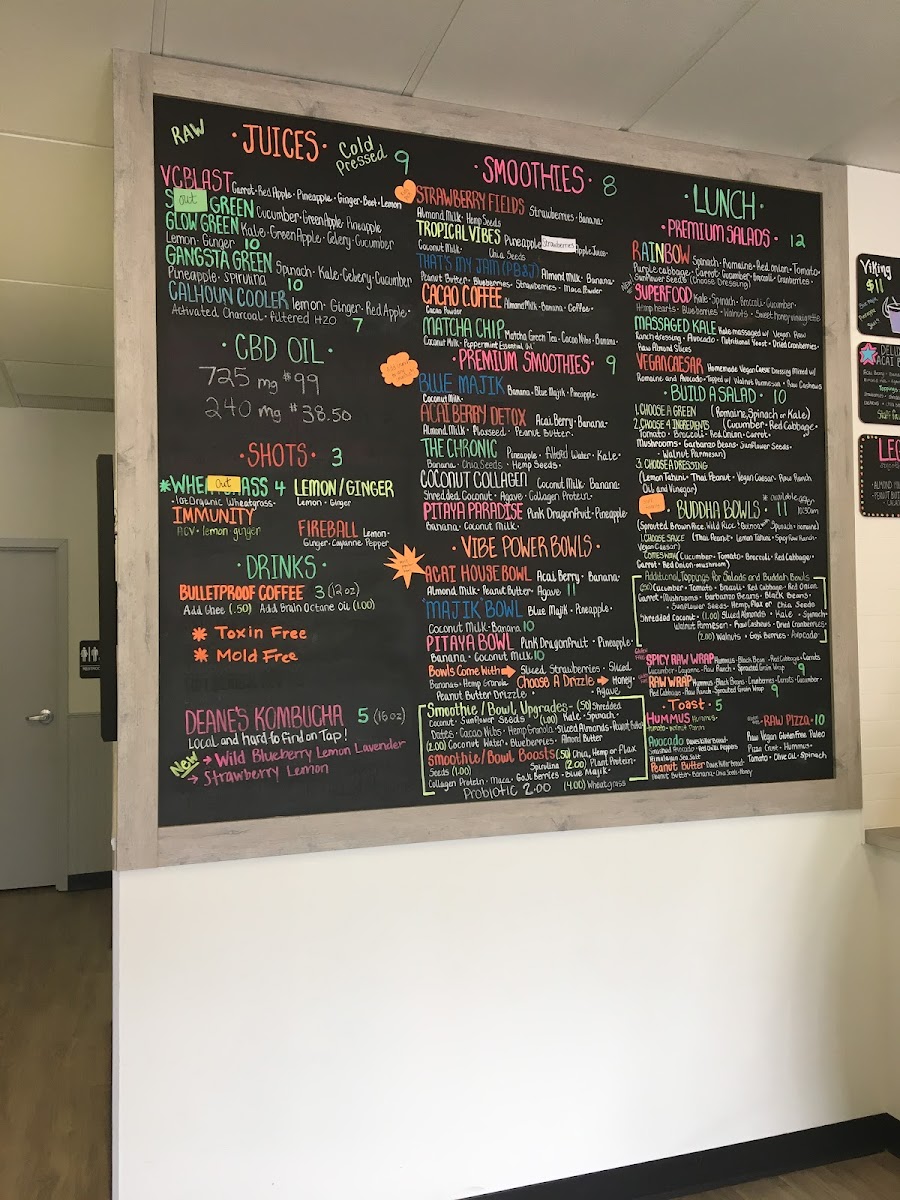 RAW
• JUICES •
Cold Pressed 9
VCBLAST Carrot • Red Apple • Pineapple • Ginger • Beet • Lemon
out
GREEN Cucumber • Green Apple • Pineapple
GLOW GREEN Kale • Green Apple • Celery • Cucumber
Lemon • Ginger 10
GANGSTA GREEN Spinach • Kale • Celery • Cucumber
Pineapple • Spirulina 10
CALHOUN COOLER lemon • Ginger • Red Apple •
Activated Charcoal • filtered H2O 7
• CBD OIL •
725 mg $99
240 mg $38.50
• SHOTS • 3
*WHE out ASS 4
• 1oz Organic Wheatgrass •
LEMON/GINGER
Lemon • Ginger
IMMUNITY
ACV • lemon • ginger
FIREBALL Lemon •
Ginger • Cayanne Pepper
• DRINKS •
BULLETPROOF COFFEE 3 (12oz)
Add Ghee (.50) Add Brain Octane Oil (1.00)
* Toxin Free
* Mold Free
DEANE'S KOMBUCHA 5 (16oz)
Local and hard to find on Tap!
New → Wild Blueberry Lemon Lavender
→ Strawberry Lemon
• SMOOTHIES • 8
STRAWBERRY FIELDS Strawberries • Banana •
Almond Milk • Hemp Seeds
TROPICAL VIBES Pineapple • Strawberries • Apple Juice •
Coconut Milk • Chia Seeds
THAT'S MY JAM (PB&J) Almond Milk • Banana •
Peanut Butter • Blueberries • Strawberries • Maca Powder
CACAO COFFEE Almond Milk • Banana • Coffee •
Cacao Powder
MATCHA CHIP Matcha Green Tea • Cacao Nibs • Banana •
Coconut Milk • Peppermint Essential Oil
• PREMIUM SMOOTHIES • 9
BLUE MAJIK Banana • Blue Majik • Pineapple •
Coconut Milk •
ACAI BERRY DETOX Acai Berry • Banana •
Almond Milk • Flaxseed • Peanut Butter •
THE CHRONIC Pineapple • Filtered Water • Kale •
Banana • Chia Seeds • Hemp Seeds •
COCONUT COLLAGEN Coconut Milk • Banana •
Shredded Coconut • Agave • Collagen Protein •
PITAYA PARADISE Pink Dragonfruit • Pineapple •
Banana • Coconut Milk •
• VIBE POWER BOWLS •
ACAI HOUSE BOWL Acai Berry • Banana •
Almond Milk • Peanut Butter • Agave 11
MAJIK BOWL Blue Majik • Pineapple •
Coconut Milk • Banana 10
PITAYA BOWL Pink Dragonfruit • Pineapple •
Banana • Coconut Milk 10
Bowls Come With → Sliced Strawberries • Sliced
Bananas • Hemp Granola Choose A Drizzle → Honey •
Peanut Butter Drizzle • Agave
Smoothie/Bowl Upgrades - (.50) Shredded
Coconut • Sunflower Seeds (1.00) Kale • Spinach •
Dates • Cacao Nibs • Hemp Granola • Sliced Almonds • Peanut Butter
(2.00) Coconut Water • Blueberries • Almond Butter
Smoothie/Bowl Boosts (.50) Chia, Hemp or Flax
Seeds (1.00) Spirulina (2.00) Plant Protein •
Collagen Protein • Maca • Goji Berries • Blue Majik •
Probiotic 2.00 (4.00) Wheatgrass
• LUNCH •
• PREMIUM SALADS • 12
RAINBOW Spinach • Romaine • Red onion • Tomato •
Purple cabbage • Carrot • Cucumber • Broccoli • Cranberries •
Sunflower Seeds (Choose Dressing)
SUPERFOOD Kale • Spinach • Broccoli • Cucumber •
Hemp hearts • Blueberries • Walnuts • Sweet honey vinaigrette
MASSAGED KALE Kale massaged w/ Vegan Raw
Ranch dressing • Avocado • Nutritional Yeast • Dried Cranberries •
Raw Almond Slices
VEGAN CAESAR Homemade Vegan Caesar Dressing Mixed w/
Romaine and Avocado • Topped w/ Walnut Parmesan • Raw Cashews
• BUILD A SALAD • 10
1. CHOOSE A GREEN (Romaine, Spinach or Kale)
2. CHOOSE 4 INGREDIENTS (Cucumber • Red Cabbage •
Tomato • Broccoli • Red Onion • Carrot •
Mushrooms • Garbanzo Beans • Sunflower Seeds •
• Walnut Parmesan)
3. CHOOSE A DRESSING
(Lemon Tahini • Thai Peanut • Vegan Caesar • Raw Ranch
Oil and Vinegar)
• BUDDHA BOWLS • 11 * available after 10:30am
(Sprouted Brown Rice, Wild Rice & Quinoa • Spinach • Romaine)
1. CHOOSE SAUCE (Thai Peanut • Lemon Tahini • Spicy Raw Ranch •
Vegan Caesar)
COMES W/ (Cucumber • Tomato • Broccoli • Red Cabbage •
Carrot • Red Onion • mushroom)
Additional Toppings for Salads and Buddah Bowls
(.50) Cucumber • Tomato • Broccoli • Red Cabbage • Red Onion
Carrot • Mushrooms • Garbanzo Beans • Black Beans •
• Sunflower Seeds • Hemp, Flax or Chia Seeds
Shredded Coconut • (1.00) Sliced Almonds • Kale • Spinach •
Walnut Parmesan • Raw Cashews • Dried Cranberries
(2.00) Walnuts • Goji Berries • Avocado •
SPICY RAW WRAP Hummus • Black Bean • Red Cabbage • Carrots
Cucumber • Cayenne • Raw Ranch • Sprouted Grain Wrap 9
RAW WRAP Hummus • Black Beans • Cranberries • Carrots • Cucumber •
Red Cabbage • Raw Ranch • Sprouted Grain Wrap 9
• Toast • 5
HUMMUS Hummus •
Avocado
Smashed Avocado • Red Chili Peppers
Himalayan Sea Salt
Peanut Butter
Peanut Butter • Banana • Chia Seeds • Honey
• RAW PIZZA • 10
Raw Vegan Gluten Free Paleo
Pizza Crust • Hummus •
Tomato • Olive Oil • Spinach
Viking
$11
DELU
ACAI
LEG